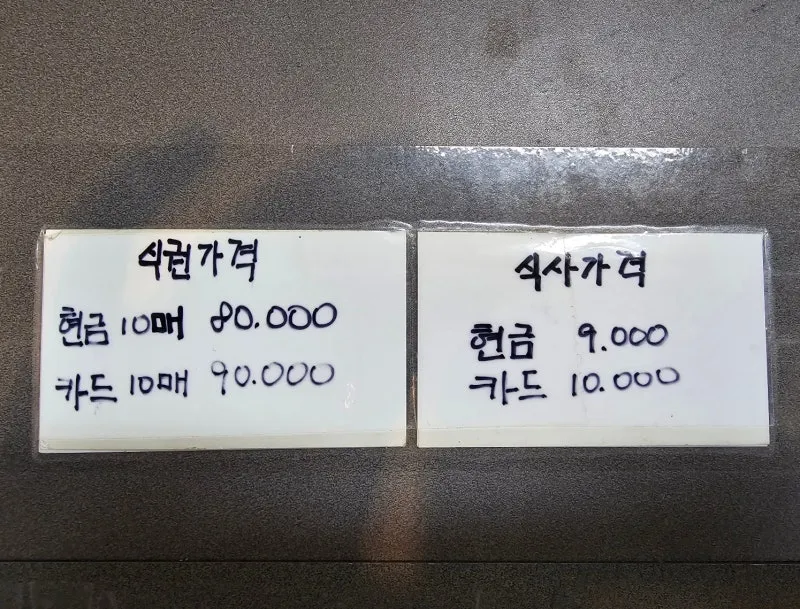 식권가격
현금 10매 80.000
카드 10매 90.000
식사가격
현금 9.000
카드 10.000